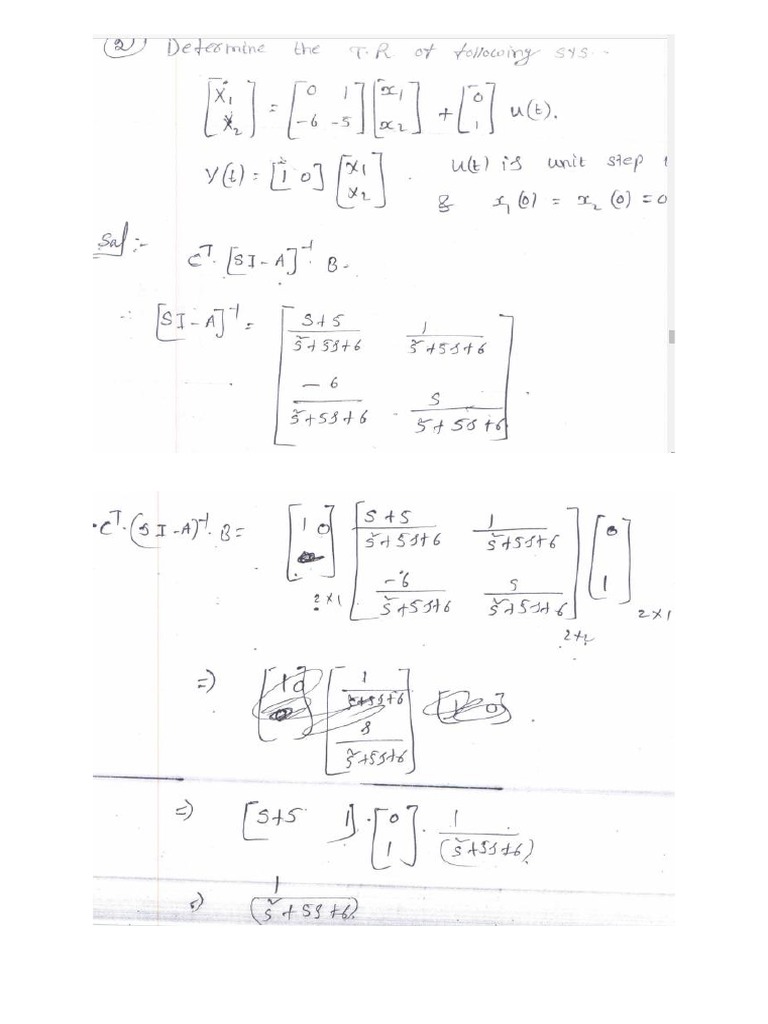 ② Determine the T.R of following sys..
[ẋ₁ ẋ₂] = [0 1 -6 -5] [x₁ x₂] + [0 1] u(t).
Y(t) = [1 0] [x₁ x₂] . u(t) is unit step
& x₁(0) = x₂(0) = 0
Sol :-
Cᵀ. [SI-A]⁻¹ B.
∴ [SI-A]⁻¹ = [ (S+5)/(s²+5s+6) 1/(s²+5s+6)
-6/(s²+5s+6) s/(s²+5s+6) ] .
Cᵀ.(SI-A)⁻¹. B = [1 0]₂ₓ₁ [ (S+5)/(s²+5s+6) 1/(s²+5s+6)
-6/(s²+5s+6) s/(s²+5s+6) ]₂ₓ₂ [0 1]₂ₓ₁
=) [1 0] [ 1/(s²+5s+6) s/(s²+5s+6) ] .
=) [S+5 1] . [0 1] . 1/(s²+5s+6)
=) 1/(s²+5s+6)